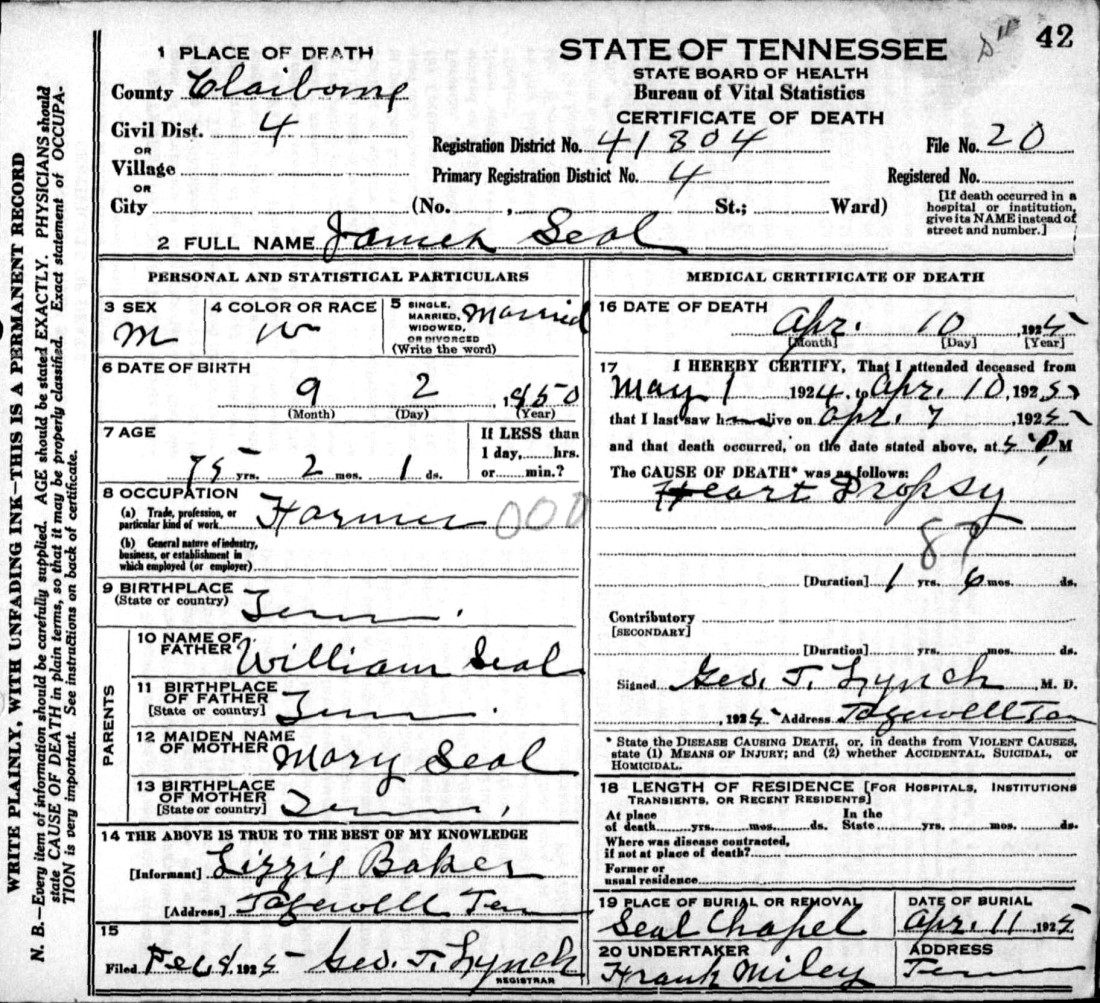 42
STATE OF TENNESSEE
STATE BOARD OF HEALTH
Bureau of Vital Statistics
CERTIFICATE OF DEATH
1 PLACE OF DEATH
County Claiborne
Civil Dist. 4
OR
Village
OR
City (No. , St.; Ward)
Registration District No. 41304 File No. 20
Primary Registration District No. 4 Registered No.
[If death occurred in a
hospital or institution,
give its NAME instead of
street and number.]
2 FULL NAME James Seal
WRITE PLAINLY, WITH UNFADING INK—THIS IS A PERMANENT RECORD
N. B.—Every item of information should be carefully supplied. AGE should be stated EXACTLY. PHYSICIANS should
state CAUSE OF DEATH in plain terms, so that it may be properly classified. Exact statement of OCCUPA-
TION is very important. See instructions on back of certificate.
PERSONAL AND STATISTICAL PARTICULARS
3 SEX
M
4 COLOR OR RACE
W
5 SINGLE,
MARRIED,
WIDOWED,
OR DIVORCED
(Write the word)
Married
6 DATE OF BIRTH
9 2 1850
(Month) (Day) (Year)
7 AGE
75 yrs. 2 mos. 1 ds.
If LESS than
1 day, hrs.
or min.?
8 OCCUPATION
(a) Trade, profession, or
particular kind of work Farmer 000
(b) General nature of industry,
business, or establishment in
which employed (or employer)
9 BIRTHPLACE
(State or country) Tenn.
PARENTS
10 NAME OF
FATHER William Seal
11 BIRTHPLACE
OF FATHER
[State or country] Tenn.
12 MAIDEN NAME
OF MOTHER Mary Seal
13 BIRTHPLACE
OF MOTHER
[State or country] Tenn.
14 THE ABOVE IS TRUE TO THE BEST OF MY KNOWLEDGE
[Informant] Lizzie Baker
[Address] Tazewell Ten
15
Filed 1925 Geo. T. Lynch
REGISTRAR
MEDICAL CERTIFICATE OF DEATH
16 DATE OF DEATH
Apr. 10 1925
[Month] [Day] [Year]
17 I HEREBY CERTIFY, That I attended deceased from
May 1 1924, to Apr. 10, 1925,
that I last saw h alive on Apr. 7, 1925
and that death occurred, on the date stated above, at 5 P. M
The CAUSE OF DEATH* was as follows:
Heart Dropsy
87
[Duration] 1 yrs. 6 mos. ds.
Contributory
[SECONDARY]
[Duration] yrs. mos. ds.
Signed Geo. T. Lynch, M. D.
, 1925 Address Tazewell Ten
* State the DISEASE CAUSING DEATH, or, in deaths from VIOLENT CAUSES,
state (1) MEANS OF INJURY; and (2) whether ACCIDENTAL, SUICIDAL, or
HOMICIDAL.
18 LENGTH OF RESIDENCE [FOR HOSPITALS, INSTITUTIONS
TRANSIENTS, OR RECENT RESIDENTS]
At place
of death yrs. mos. ds.
In the
State yrs. mos. ds.
Where was disease contracted,
if not at place of death?
Former or
usual residence
19 PLACE OF BURIAL OR REMOVAL
Seal Chapel
DATE OF BURIAL
Apr. 11, 1925
20 UNDERTAKER
Frank Miley
ADDRESS
Tenn